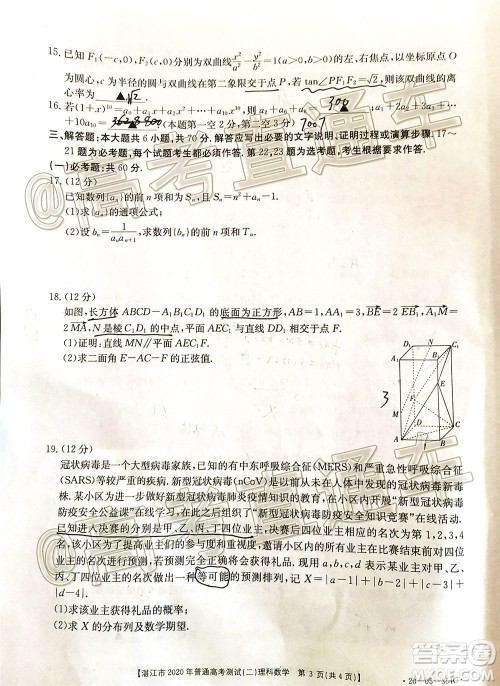 15. 已知 F₁(-c,0), F₂(c,0) 分别为双曲线 x²/a² - y²/b² = 1(a>0,b>0) 的左、右焦点, 以坐标原点 O
为圆心, c 为半径的圆与双曲线在第二象限交于点 P, 若 tan∠PF₁F₂=√2, 则该双曲线的离
心率为 ▲ √2.
16. 若(1+x)¹⁰=a₀+a₁x+a₂x²+⋯+a₁₀x¹⁰, a₁+2a₂+3a₃+⋯
+10a₁₀= (本题第一空2分, 第二空3分)
三、解答题: 本大题共 6 小题, 共 70 分. 解答应写出必要的文字说明、证明过程或演算步骤. 17~
21 题为必考题, 每个试题考生都必须作答. 第 22、23 题为选考题, 考生根据要求作答.
(一)必考题: 共 60 分.
17. (12 分)
已知数列{aₙ}的前 n 项和为 S, 且 S=n²+aₙ.
(1)求{aₙ}的通项公式;
(2)设 bₙ=1/(aₙaₙ₊₁), 求数列{bₙ}的前 n 项和 Tₙ.
18. (12 分)
如图, 长方体 ABCD-A₁B₁C₁D₁ 的底面为正方形, AB=1, AA₁=3, BE=2EB₁, A₁M=
2MA, N 是棱 C₁D₁ 的中点, 平面 AEC₁ 与直线 DD₁ 相交于点 F.
(1)证明: 直线 MN∥平面 AEC₁F.
(2)求二面角 E-AC-F 的正弦值.
3
1
19. (12 分)
冠状病毒是一个大型病毒家族, 已知可引起中东呼吸综合征(MERS)和严重急性呼吸综合征
(SARS)等较严重疾病. 新型冠状病毒(nCoV)是以前从未在人体中发现的冠状病毒新毒
株. 某小区为进一步做好新型冠状病毒肺炎疫情知识的教育, 在小区内开展“新型冠状病毒
防疫安全公益课”在线学习, 在此之后组织了“新型冠状病毒防疫安全知识竞赛”在线活
动. 已知进入决赛的分别是甲、乙、丙、丁四位业主, 决赛后四位业主相应的名次为第 1,2,3,
4 名, 该小区为了提高业主们的参与度和重视度, 邀请小区内的所有业主在比赛结束前对四
位业主的名次进行预测, 若预测完全正确将会获得礼品, 现用 a,b,c,d 表示某业主对甲、乙、
丙、丁四位业主的名次做出一种等可能的预测排列, 记 X=|a-1|+|b-2|+|c-3|+
|d-4|.
(1)求该业主获得礼品的概率;
(2)求 X 的分布列及数学期望.
【湛江市 2020 年普通高考测试(二)理科数学 第 3 页(共 4 页)】